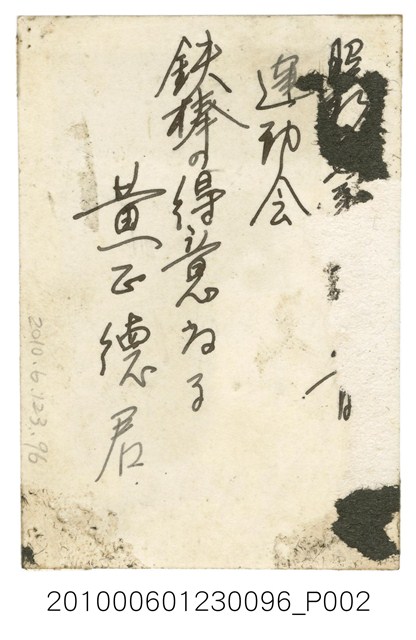 昭
運動会
鉄棒の得意なる
黄正德君
2010.6.123.96
201000601230096_P002